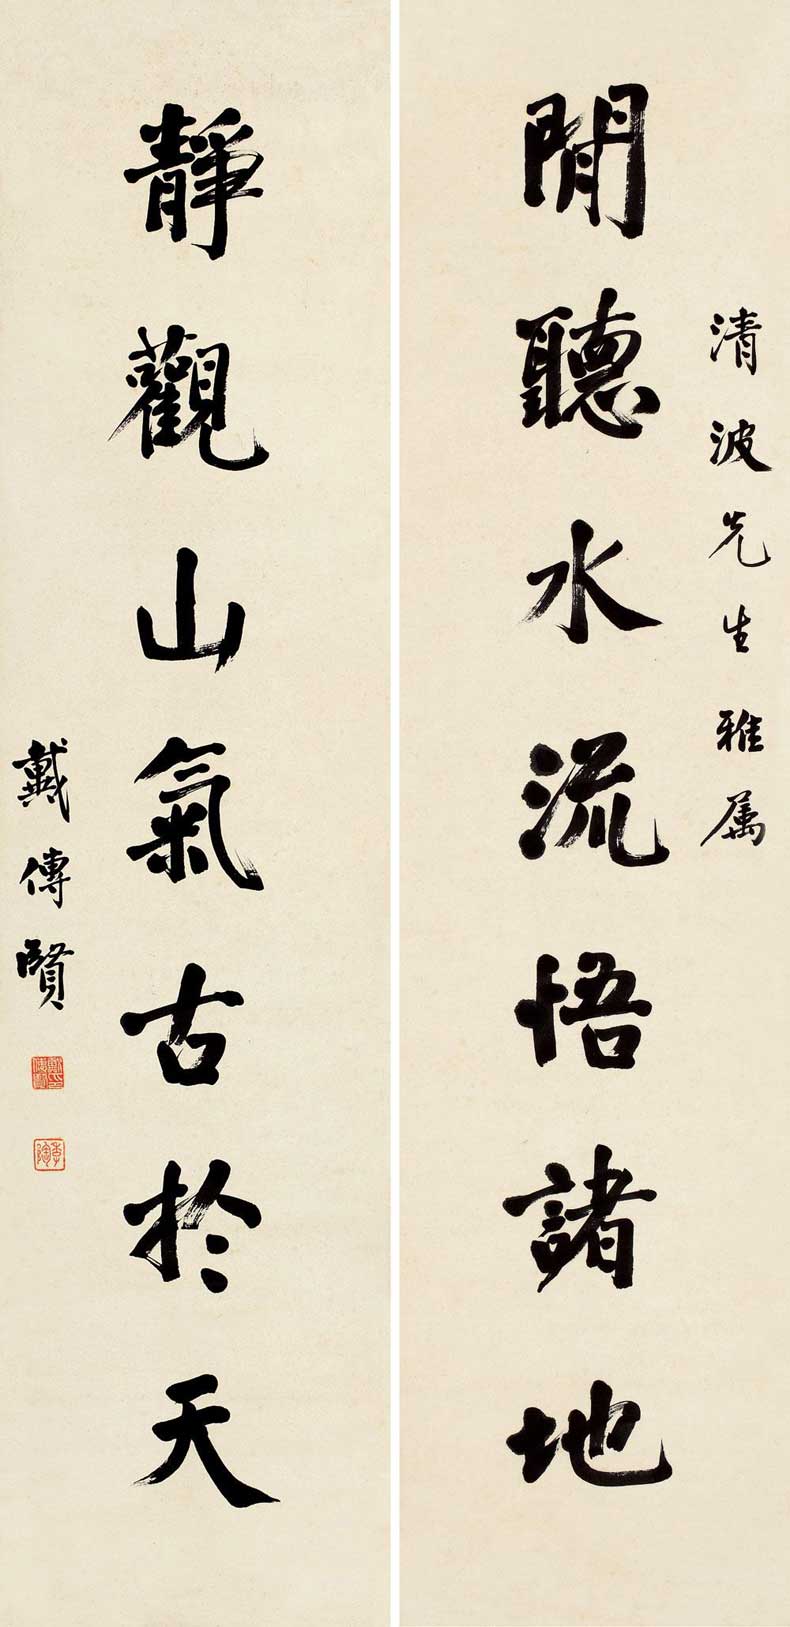 清波先生雅属
閒聽水流悟諸地
靜觀山氣古於天
戴傳賢
季陶